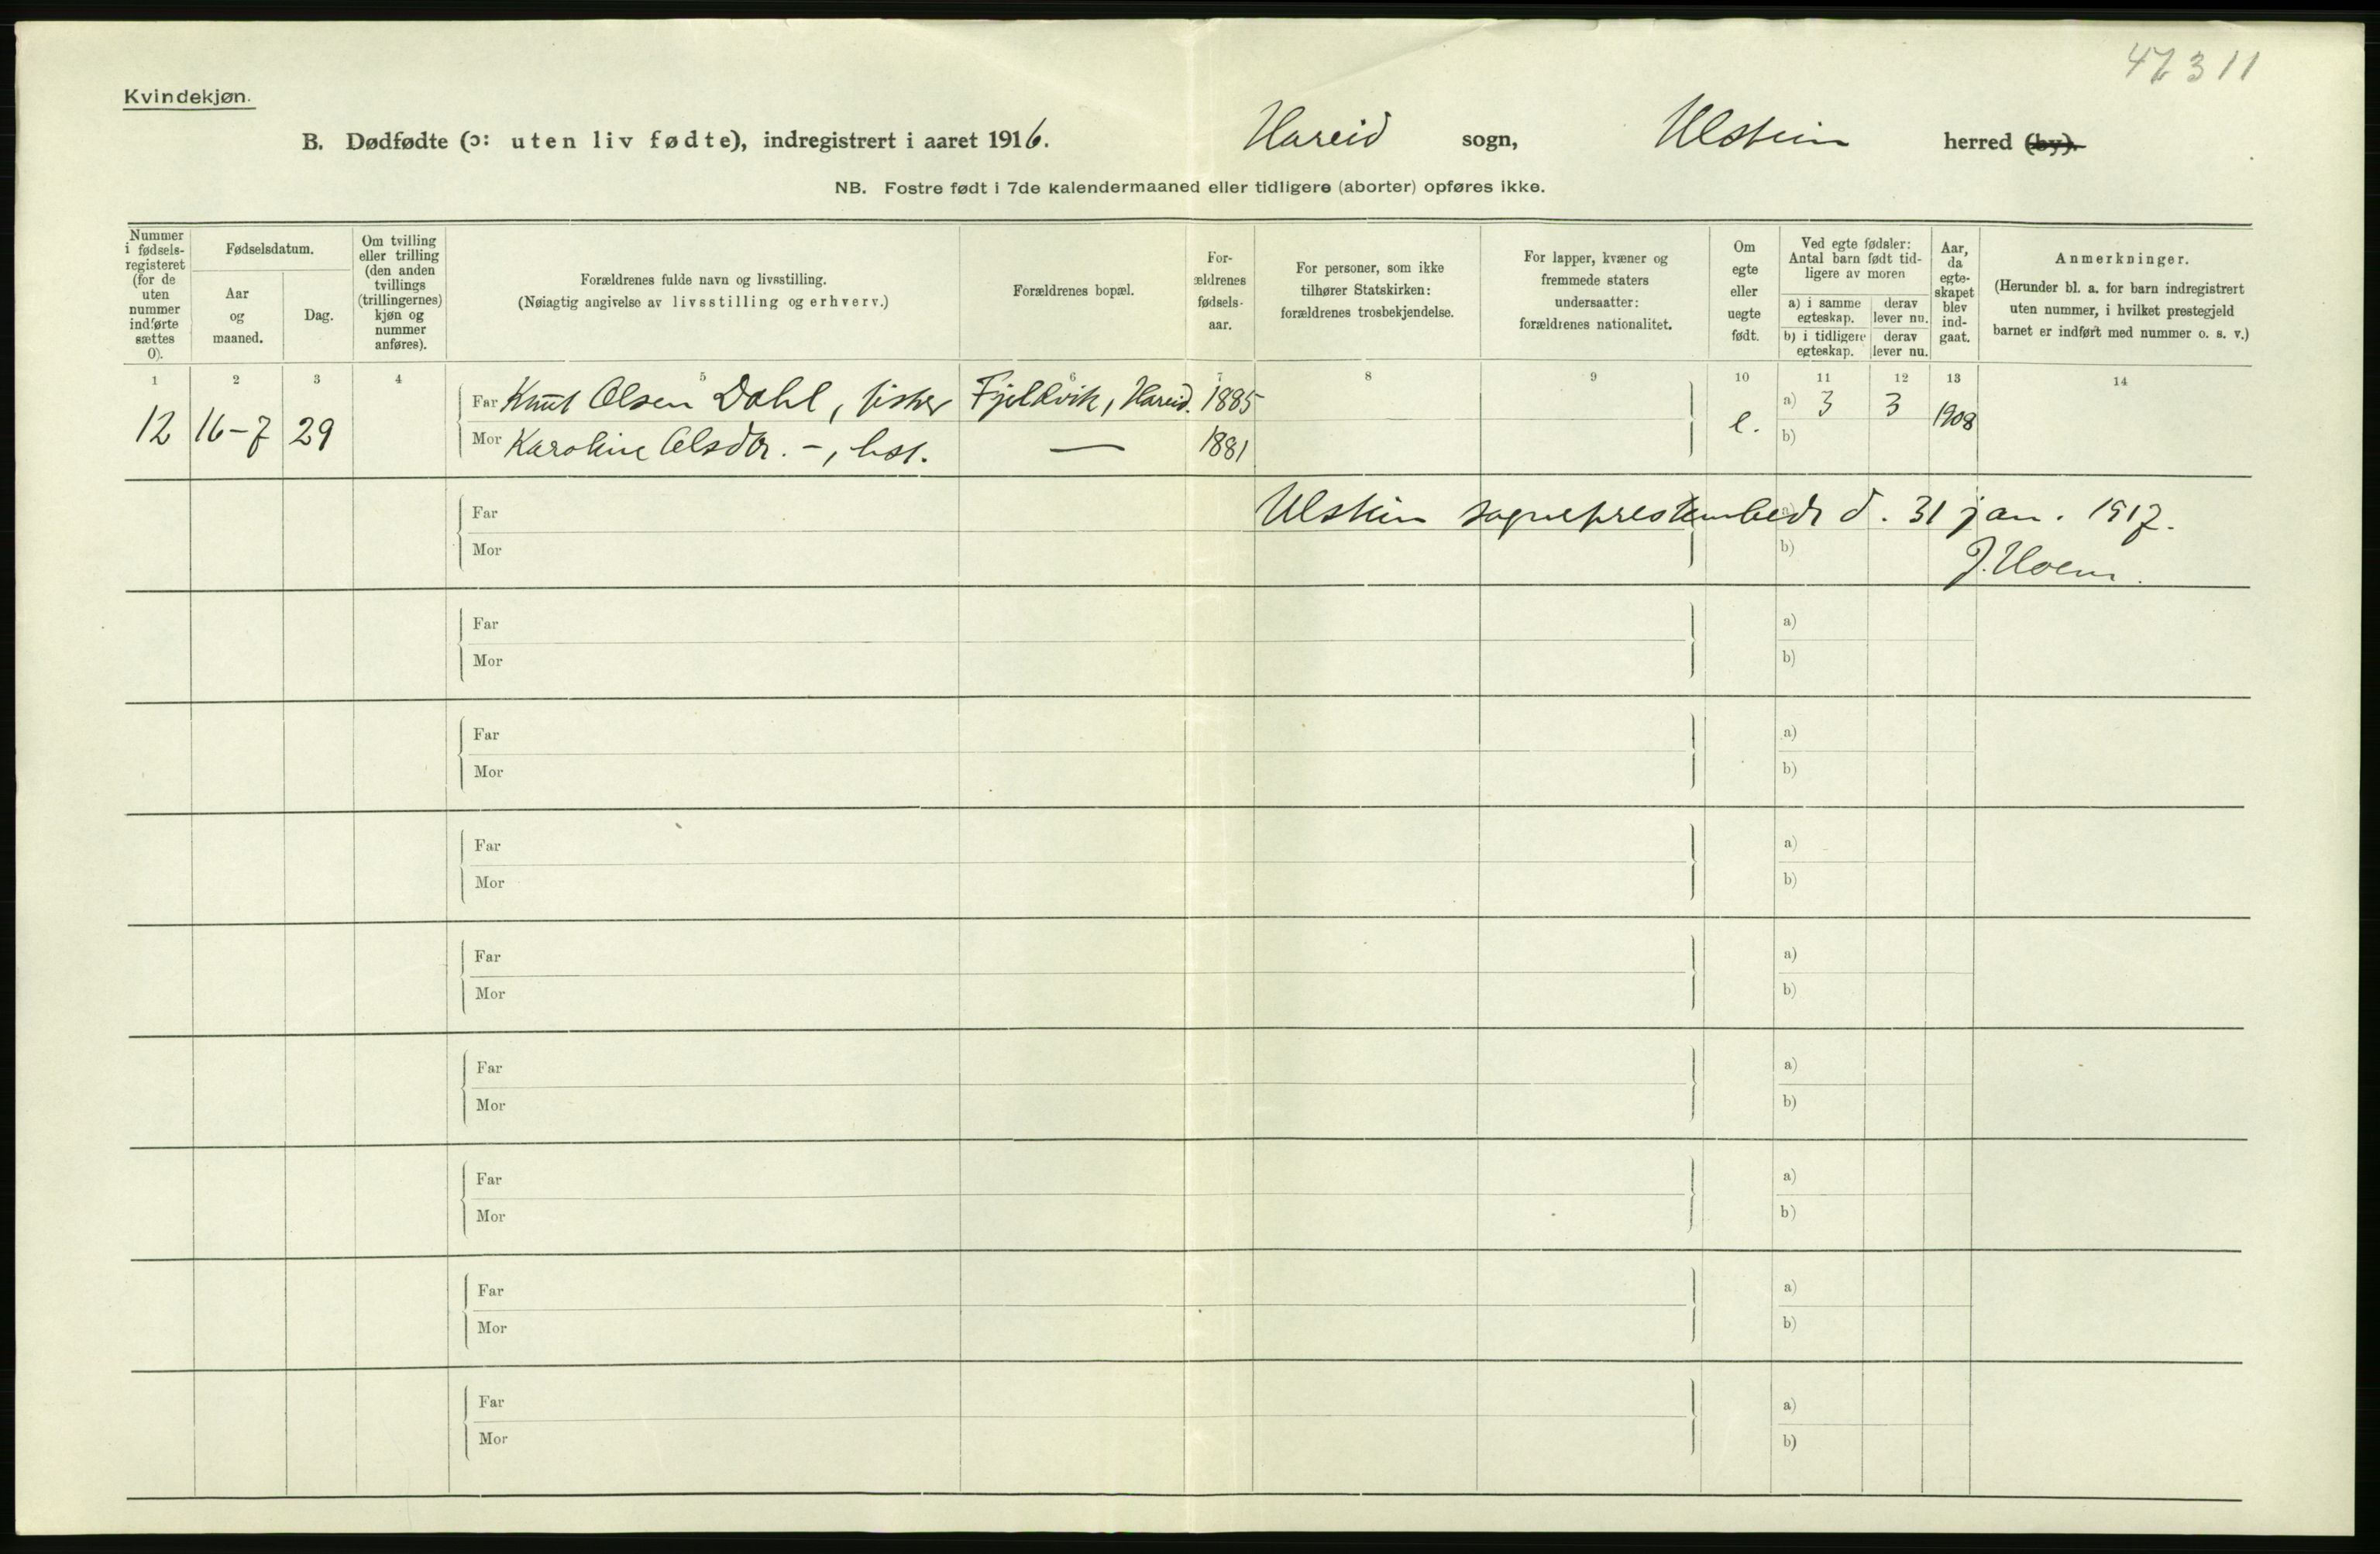 47311
Kvindekjøn.
B. Dødfødte (ɔ: uten liv fødte), indregistrert i aaret 1916. Hareid sogn, Ulstein herred (by).
NB. Fostre født i 7de kalendermaaned eller tidligere (aborter) opføres ikke.
Nummer i fødsels-registeret (for de uten nummer indførte sættes 0).
Fødselsdatum.
Aar og maaned.
Dag.
Om tvilling eller trilling (den anden tvillings (trillingernes) kjøn og nummer anføres).
Forældrenes fulde navn og livsstilling.
(Nøiagtig angivelse av livsstilling og erhverv.)
Forældrenes bopæl.
For-ældrenes fødsels-aar.
For personer, som ikke tilhører Statskirken: forældrenes trosbekjendelse.
For lapper, kvæner og fremmede staters undersaatter: forældrenes nationalitet.
Om egte eller uegte født.
Ved egte fødsler: Antal barn født tid-ligere av moren
a) i samme egteskap.
derav lever nu.
b) i tidligere egteskap.
derav lever nu.
Aar, da egte-skapet blev ind-gaat.
Anmerkninger.
(Herunder bl. a. for barn indregistrert uten nummer, i hvilket prestegjeld barnet er indført med nummer o. s. v.)
1 2 3 4 5 6 7 8 9 10 11 12 13 14
12 16-7 29 Far Knut Olsen Dahl, fisker Fjelkvik, Hareid. 1885 e. a) 3 3 1908
Mor Karoline Olsdtr. -, hst. — 1881 b)
Far Ulstein sogneprestembede d. 31 jan. 1917.
Mor b) J. Hoem.
Far a)
Mor b)
Far a)
Mor b)
Far a)
Mor b)
Far a)
Mor b)
Far a)
Mor b)
Far a)
Mor b)
Far a)
Mor b)
Far a)
Mor b)